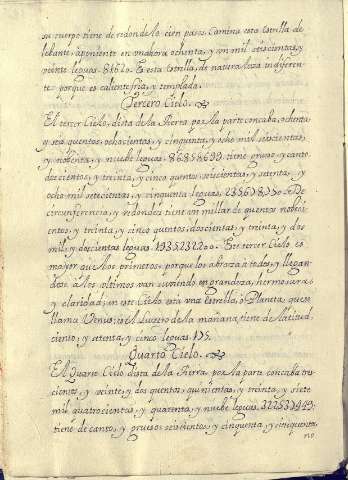 su cuerpo tiene de redondo lo cien pasos. Camina esta estrella de
lebante, aponiente en una hora ochenta, y un mil seiscientas, y
veinte leguas. 81620. Es esta estrella, de naturaleza indiferen
te porque es caliente fria, y templada.
Tercero Cielo.
El tercer Cielo, dista de la tierra por la parte concaba, ochenta
y seis quentos, ochocientos, y cinquenta, y ocho mil seiscientas,
y nobenta, y nuebe leguas. 86858699 tiene grueso y canto
docientos, y treinta, y cinco quentos, seiscientas, y setenta, y
ocho mil setecientas, y cinquenta leguas, 235678750 De
circunferencia, y rédondéz tiene un millar de quentos nobeci
entos, y treinta, y cinco quentos, doscientas, y treinta, y dos
mil, y doscientas leguas. 1935232200. Este tercer Cielo es
mayor que los primeros; porque los abraza à todos, y llegan-
dose à los ultimos van siriendo en grandeza, hermosura,
y claridad; en este Cielo esta una estrella, ò Planeta, que se
llama Venus; es el Luzero de la mañana, tiene de latitud,
ciento, y setenta, y cinco leguas. 175.
Quarto Cielo.
El Quarto Cielo dista de la tierra por la parte concaba tres
cientos, y veinte, y dos quentos, quinientas, y treinta, y siete
mil quatrocientas, y quarenta, y nuebe leguas. 322537449:
tiene de canto, y grueso seiscientos, y cinquenta, y cinco quenta